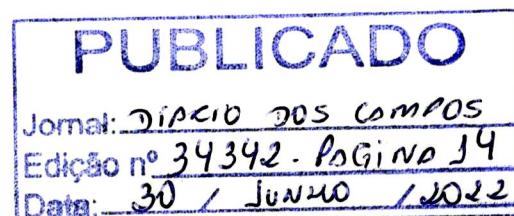 PUBLICADO
Jornal: DIARIO DOS CAMPOS
Edição nº 34342 - PAGINA 14
Data: 30 / JUNHO / 2022